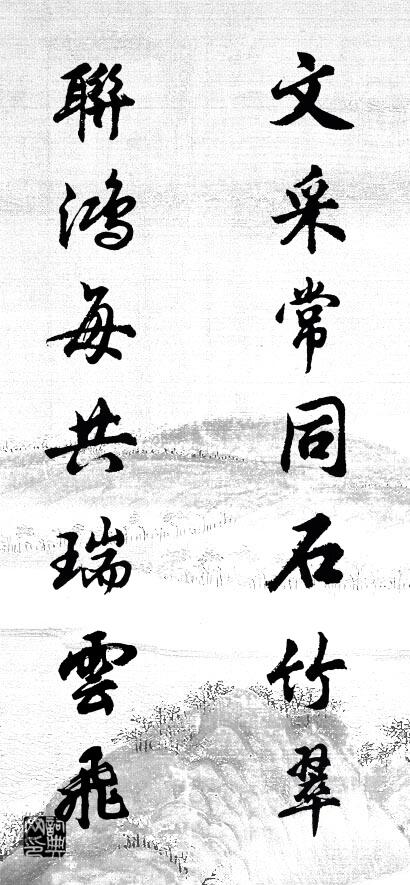 文采常同石竹翠
聯鴻每共瑞雲飛